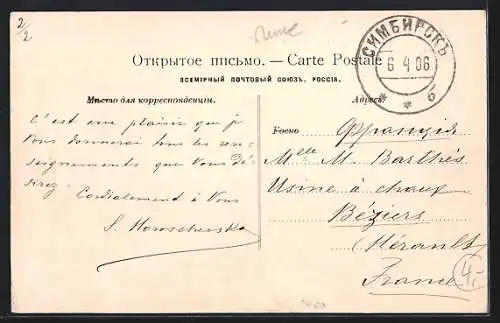 2/2
Открытое письмо. — Carte Postale
ВСЕМІРНЫЙ ПОЧТОВЫЙ СОЮЗЪ. РОССІЯ.
СИМБИРСКЪ
6 4 06
* * б
Мѣсто для корреспонденціи.
C'est une plaisir que je
Vous donnerai tous les ren-
seignements que Vous dé-
sirez. Cordialement à Vous
S.
Адресъ.
Франція
Melle M. Barthés
Usine à chaux
Béziers
(Hérault)
France
4.-